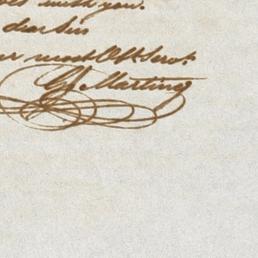 with you.
dear Sir
most Obt Servt
Martin